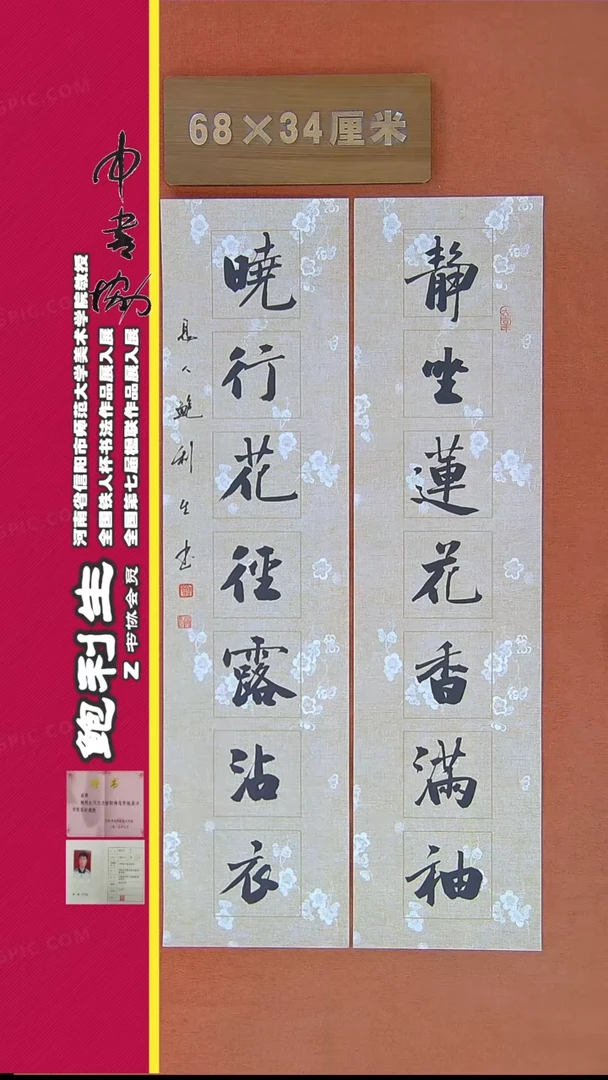 68×34厘米
靜坐蓮花香滿袖
曉行花徑露沾衣
鮑利生書
中书协
河南省信阳市师范大学美术学院教授
全国铁人杯书法作品展入展
全国第七届楹联作品展入展
鲍利生
Z书协会员